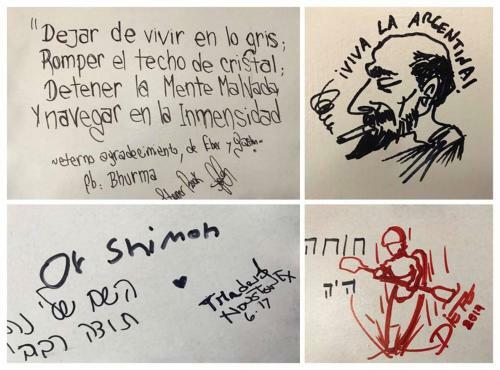 "Dejar de vivir en lo gris;
Romper el techo de cristal;
Detener la Mente Malvada
Y navegar en la Inmensidad
eterno agradecimiento, de Eber y
fb: Bhurma
¡VIVA LA ARGENTINA!
Or Shimon
השם שלי
תודה רבה
Houston, TX
6.17
היה
DIEP
2014